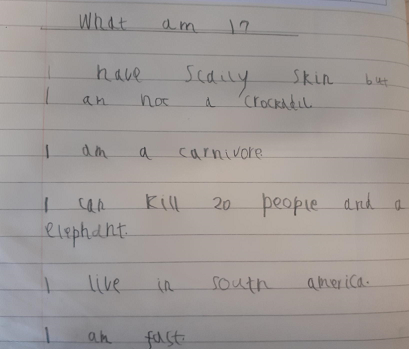 What am I?
I have scaily skin but
I am not a crockadil
I am a carnivore
I can kill 20 people and a
elephant.
I live in south america.
I am fast.